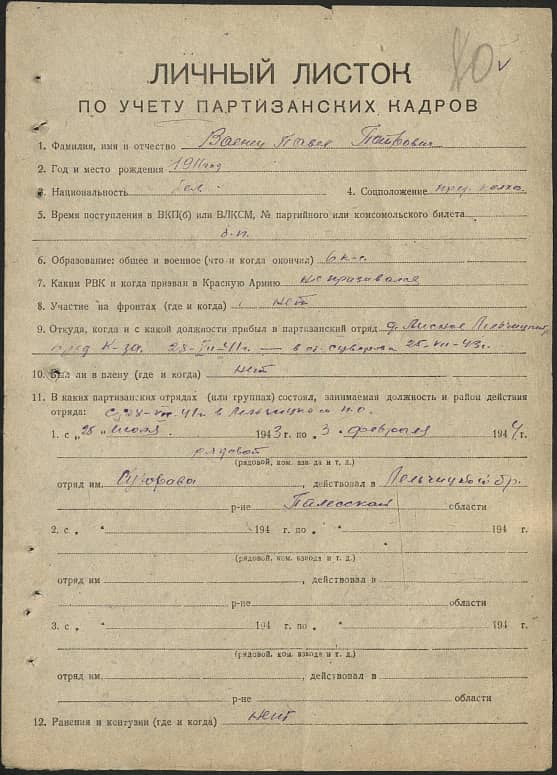 80 v
ЛИЧНЫЙ ЛИСТОК
ПО УЧЕТУ ПАРТИЗАНСКИХ КАДРОВ
1. Фамилия, имя и отчество Павел Петрович
2. Год и место рождения 1911 год
3. Национальность бел. 4. Соцположение пред. колхо.
5. Время поступления в ВКП(б) или ВЛКСМ, № партийного или комсомольского билета
б-п.
6. Образование: общее и военное (что и когда окончил) 6 кл.
7. Каким РВК и когда призван в Красную Армию не призывался
8. Участие на фронтах (где и когда) нет
9. Откуда, когда и с какой должности прибыл в партизанский отряд д. Лисное Лельчицкий
пред к-за. 41г. — в от. Суворова 25-VII-43г.
10. Был ли в плену (где и когда) нет
11. В каких партизанских отрядах (или группах) состоял, занимаемая должность и район действия
отряда: 41г. в Лельчицком п.о.
1. с „25" июля 1943 г. по „3" февраля 1944 г.
рядовой
(рядовой, ком. взвода и т. д.)
отряд им. Суворова , действовал в Лельчицкой бр.
р-не Полесской области
2. с „ " 194 г. по „ " 194 г.
(рядовой, ком. взвода и т. д.)
отряд им , действовал в
р-не области
3. с „ " 194 г. по „ " 194 г.
(рядовой, ком. взвода и т. д.)
отряд им. , действовал в
р-не области
12. Ранения и контузии (где и когда) нет